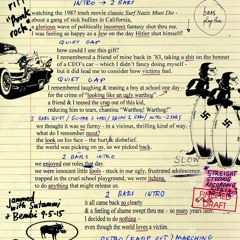 riff
"punk rock"
INTRO → 2 BARS
watching the 1987 truth movie classic Surf Nazis Must Die -
about a gang of sick bullies in California,
a glorious wave of politically incorrect fantasy shot thru me.
I was feeling as happy as a Jew on the day Hitler shot himself!
QUIET GAP
how could I use this gift?
I remembered a friend of mine back in '83, taking a shit on the bonnet
of a CEO's car – which I didn't fancy doing much,
but it did lead me to consider how victims feel.
QUIET GAP
I remembered laughing & teasing a boy at school one day
for the crime of "looking like an ugly warthog"
a friend & I teased the crap out of this kid,
reducing him to tears, chanting "Warthog! Warthog!"
we thought it was so funny - in a vicious, thrilling kind of way.
what do I remember most?
the look on his face – the hurt & disbelief.
the world was picking on us, so we picked back.
2 BARS INTRO
we enjoyed our roles that day.
we were innocent little tools - stuck in an ugly, frustrated adolescence.
trapped in the cruel school playground, we were itching
to do anything that might release us.
SLOW
2 BARS INTRO
it all came back so clearly
& a feeling of shame swept thru me – so many years later.
I decided to do nothing –
even though the world was full of victims.
jammed with Sutammi
+ Bembi 9-5-15
STREIGHT
STUDIOS
RECORDING
FINISHED
DRAFT
OUTRO (FADE OUT) MARCHING